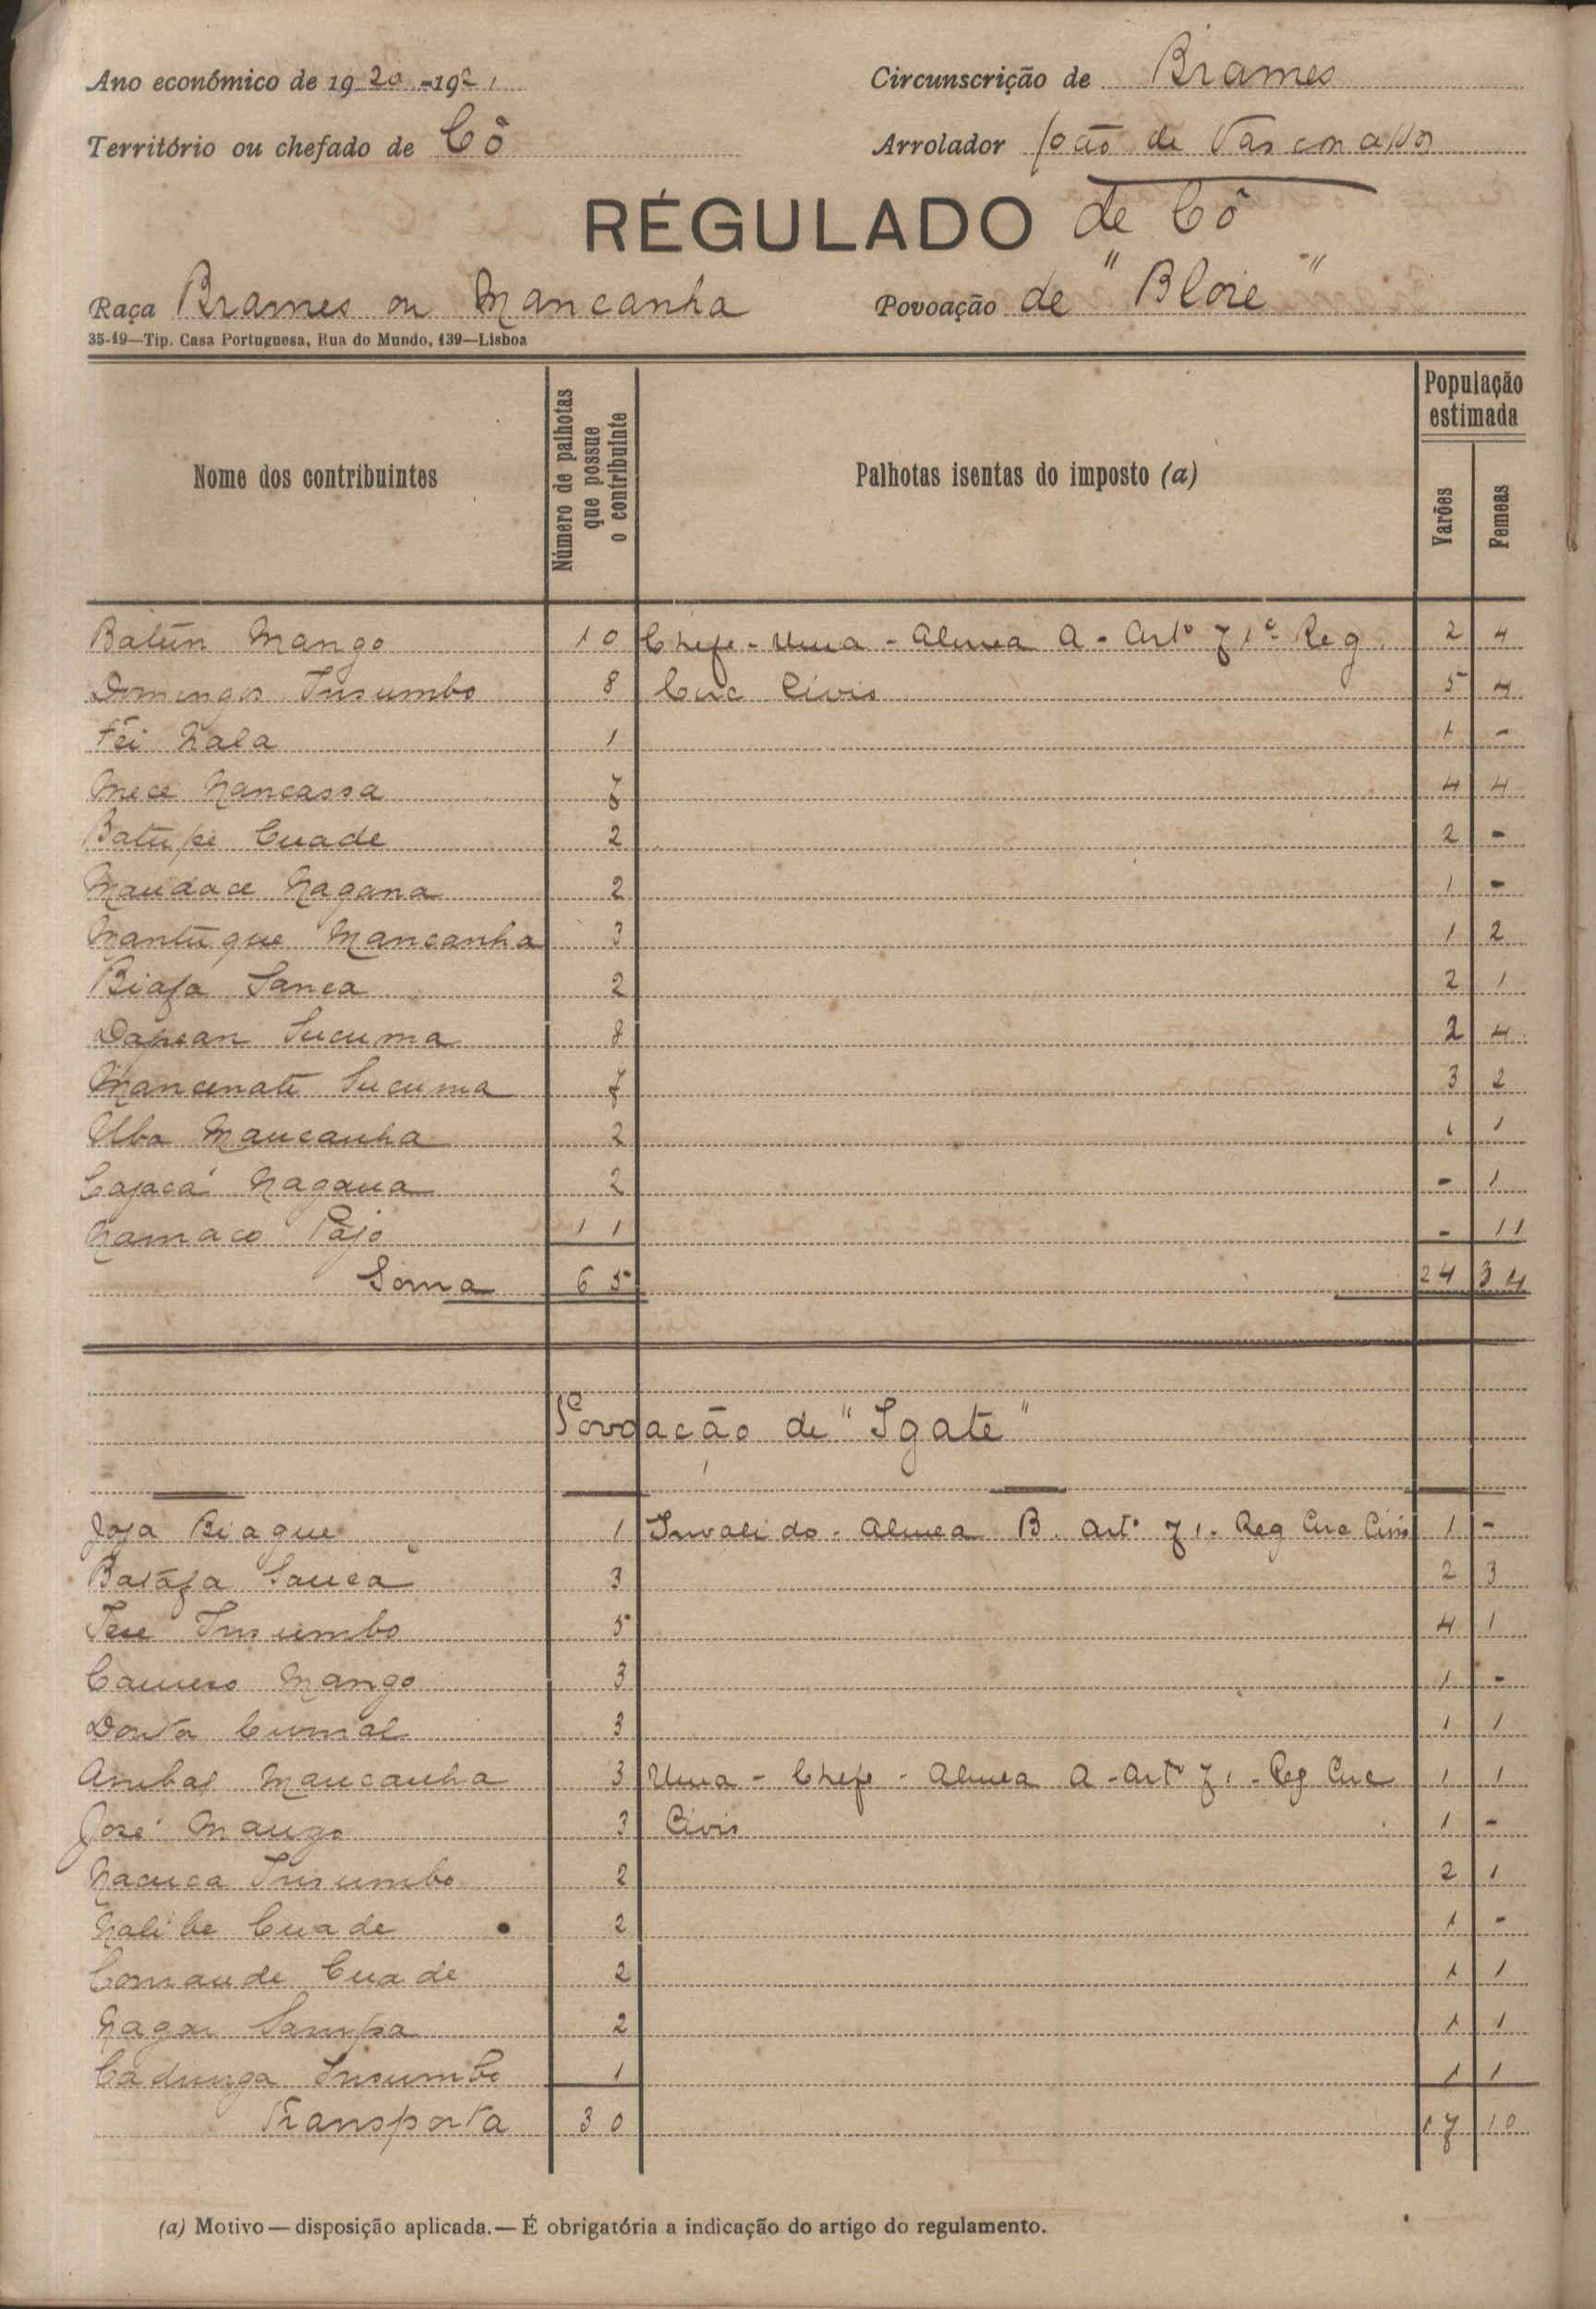 Ano económico de 1920-1921
Circunscrição de Brames
Território ou chefado de Cô
Arrolador João de Vasconcellos
RÉGULADO de Cô
Raça Brames ou Mancanha
Povoação de "Bloie"
35-19—Tip. Casa Portuguesa, Rua do Mundo, 139—Lisboa
Nome dos contribuintes
Número de palhotas que possue o contribuinte
Palhotas isentas do imposto (a)
População estimada
Varões
Femeas
Batün Mango 10 Chefe - Uma - Alinea A - Artº 71º Reg 2 4
Domingos Insumbo 8 Circ Civis 5 4
Féi Nala 1 1 -
Mece Nancassa 7 4 4
Batupe Cuade 2 2 -
Maudace Nagana 2 1 -
Nantüque Mancanha 3 1 2
Biafa Sanca 2 2 1
Sucuma 8 2 4
Mancunate Sucuma 7 3 2
Uba Mancanha 2 1 1
Cajacá Nagana 2 - 1
Namaco Pajo 11 - 11
Soma 65 24 34
Povoação de "Igate"
Joja Biague 1 Invalido - Alinea B. Artº 71 - Reg Circ Civis 1 -
Batáfa Sanca 3 2 3
Insumbo 5 4 1
Mango 3 1 -
Cumal 3 1 1
Anibal Mancanha 3 Uma - Chefe - Alinea A - Artº 71 - Reg Circ 1 1
José Mango 3 Civis 1 -
Nacuca Insumbo 2 2 1
Nalibe Cuade 2 1 -
Comande Cuade 2 1 1
Nagai Sampa 2 1 1
Cadunga Insumbo 1 1 1
Transporta 30 17 10
(a) Motivo — disposição aplicada. — É obrigatória a indicação do artigo do regulamento.